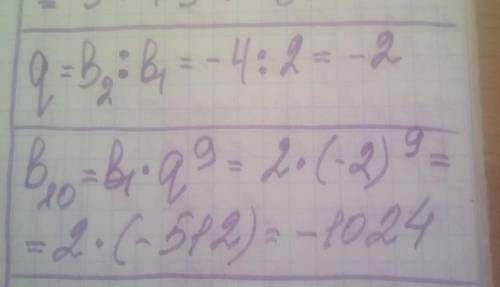 q = b₂ : b₁ = -4 : 2 = -2
b₁₀ = b₁ · q⁹ = 2 · (-2)⁹ =
= 2 · (-512) = -1024